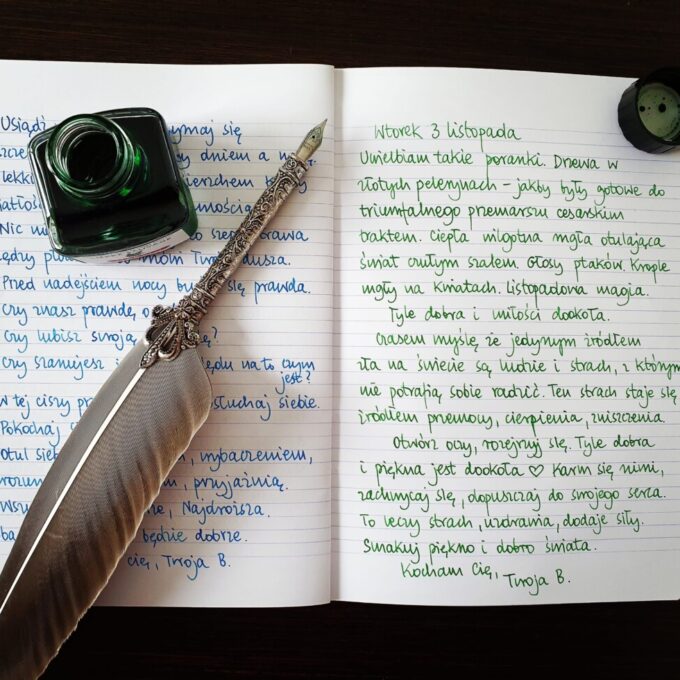 Usiądź się
dniem a
Nic
Twoja dusza.
Przed nadejściem nocy się prawda.
Czy znasz prawdę
Czy lubisz swoją ?
Czy szanujesz i na to czym
jest?
W tej ciszy słuchaj siebie.
Pokochaj
Otul , wybaczeniem,
, przyjaźnią.
Najdroższa.
będzie dobrze.
Cię, Twoja B.
Wtorek 3 listopada
Uwielbiam takie poranki. Drzewa w
złotych pelerynach – jakby były gotowe do
triumfalnego przemarszu cesarskim
traktem. Ciepła wilgotna mgła otulająca
świat czułym szalem. Głosy ptaków. Krople
mgły na kwiatach. Listopadowa magia.
Tyle dobra i miłości dookoła.
Czasem myślę że jedynym źródłem
zła na świecie są ludzie i strach, z którym
nie potrafią sobie radzić. Ten strach staje się
źródłem przemocy, cierpienia, zniszczenia.
Otwórz oczy, rozejrzyj się. Tyle dobra
i piękna jest dookoła ♡ Karm się nimi,
zachwycaj się, dopuszczaj do swojego serca.
To leczy strach, uzdrawia, dodaje siły.
Smakuj piękno i dobro świata.
Kocham Cię, Twoja B.